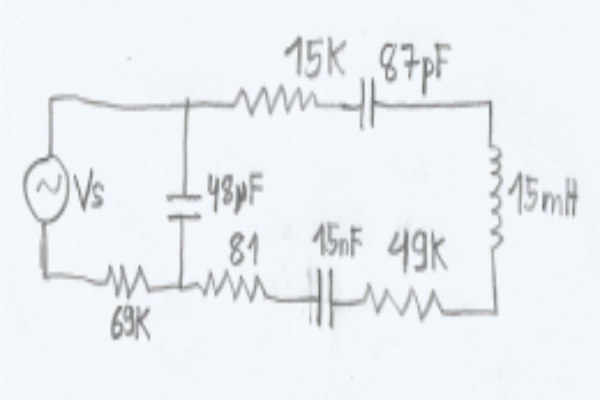 15K 87pF
Vs 48µF 15mH
81 15nF 49K
69K